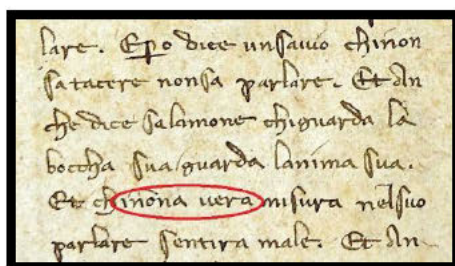 lare. Epo dice unsauio chinon
sa tacere nonsa parlare. Et An
che dice Salamone chiguarda la
boccha sua guarda lanima sua.
Et chinona uera misura nelsuo
parlare Sentira male. Et An